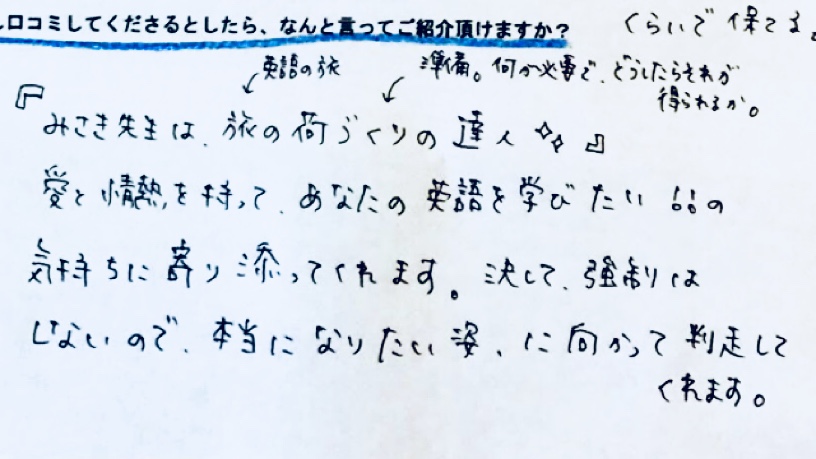 口コミしてくださるとしたら、なんと言ってご紹介頂けますか？
くらいで保てる。
英語の旅
準備。何が必要で、どうしたらそれが
得られるか。
『みさき先生は、旅の荷づくりの達人✧✧』
愛と情熱を持って、あなたの英語を学びたい!!の
気持ちに寄り添ってくれます。決して、強制は
しないので、本当になりたい姿、に向かって判走して
くれます。